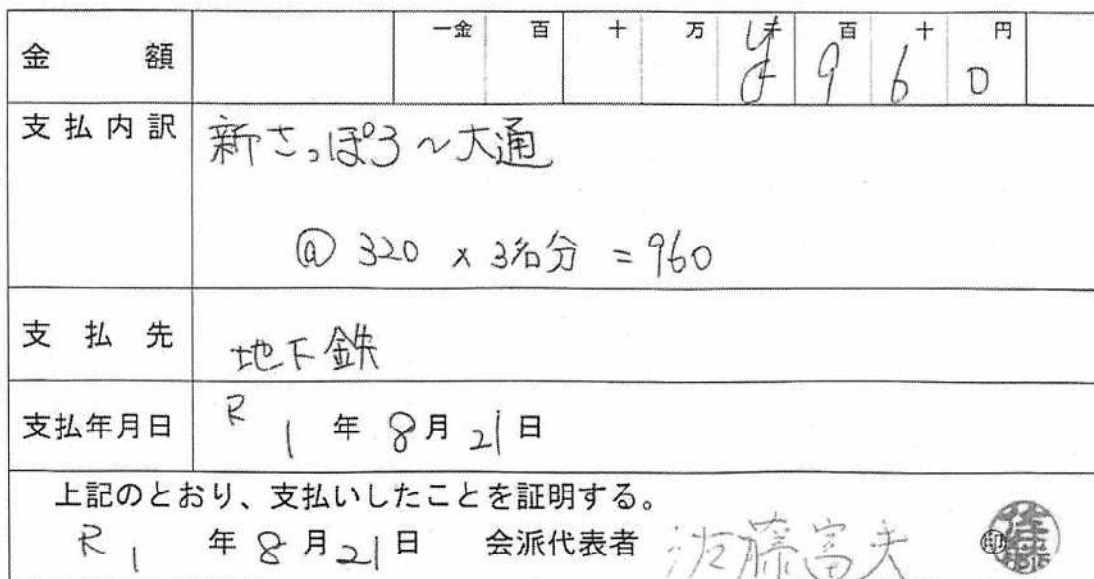 金額 一金 百 十 万 千 百 十 円
¥ 9 6 0
支払内訳 新さっぽろ~大通
@ 320 × 3名分 = 960
支払先 地下鉄
支払年月日 R 1 年 8 月 21 日
上記のとおり、支払いしたことを証明する。
R 1 年 8 月 21 日 会派代表者 佐藤富夫 印